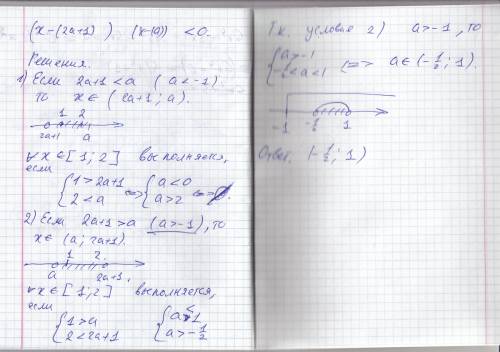 (x-(2a+1)) (x-(a)) < 0.
Решения.
1) Если 2a+1 < a (a < -1)
то x ∈ (2a+1; a).
1 2
2a+1 a
∀x ∈ [1; 2] выполняется,
если
{1 > 2a+1 <=> {a < 0 <=> ∅.
{2 < a {a > 2
2) Если 2a+1 > a (a > -1), то
x ∈ (a; 2a+1).
1 2.
a 2a+1,
∀x ∈ [1; 2] выполняется,
если
{1 > a {a < 1
{2 < 2a+1 {a > -1/2
Т.к. условие 2) a > -1, то
{a > -1
{-1/2 < a < 1 <=> a ∈ (-1/2; 1).
-1 -1/2 1
Ответ. (-1/2; 1)